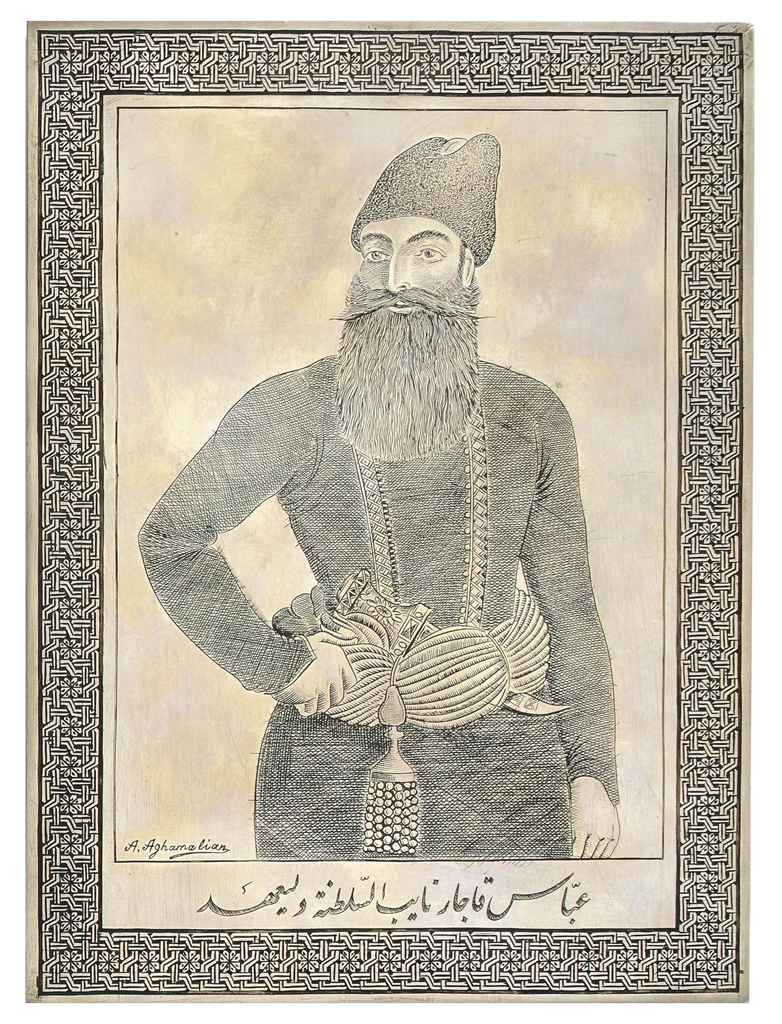 A. Aghamalian
عبّاس قاجار نایب السّلطنة ولیعهد